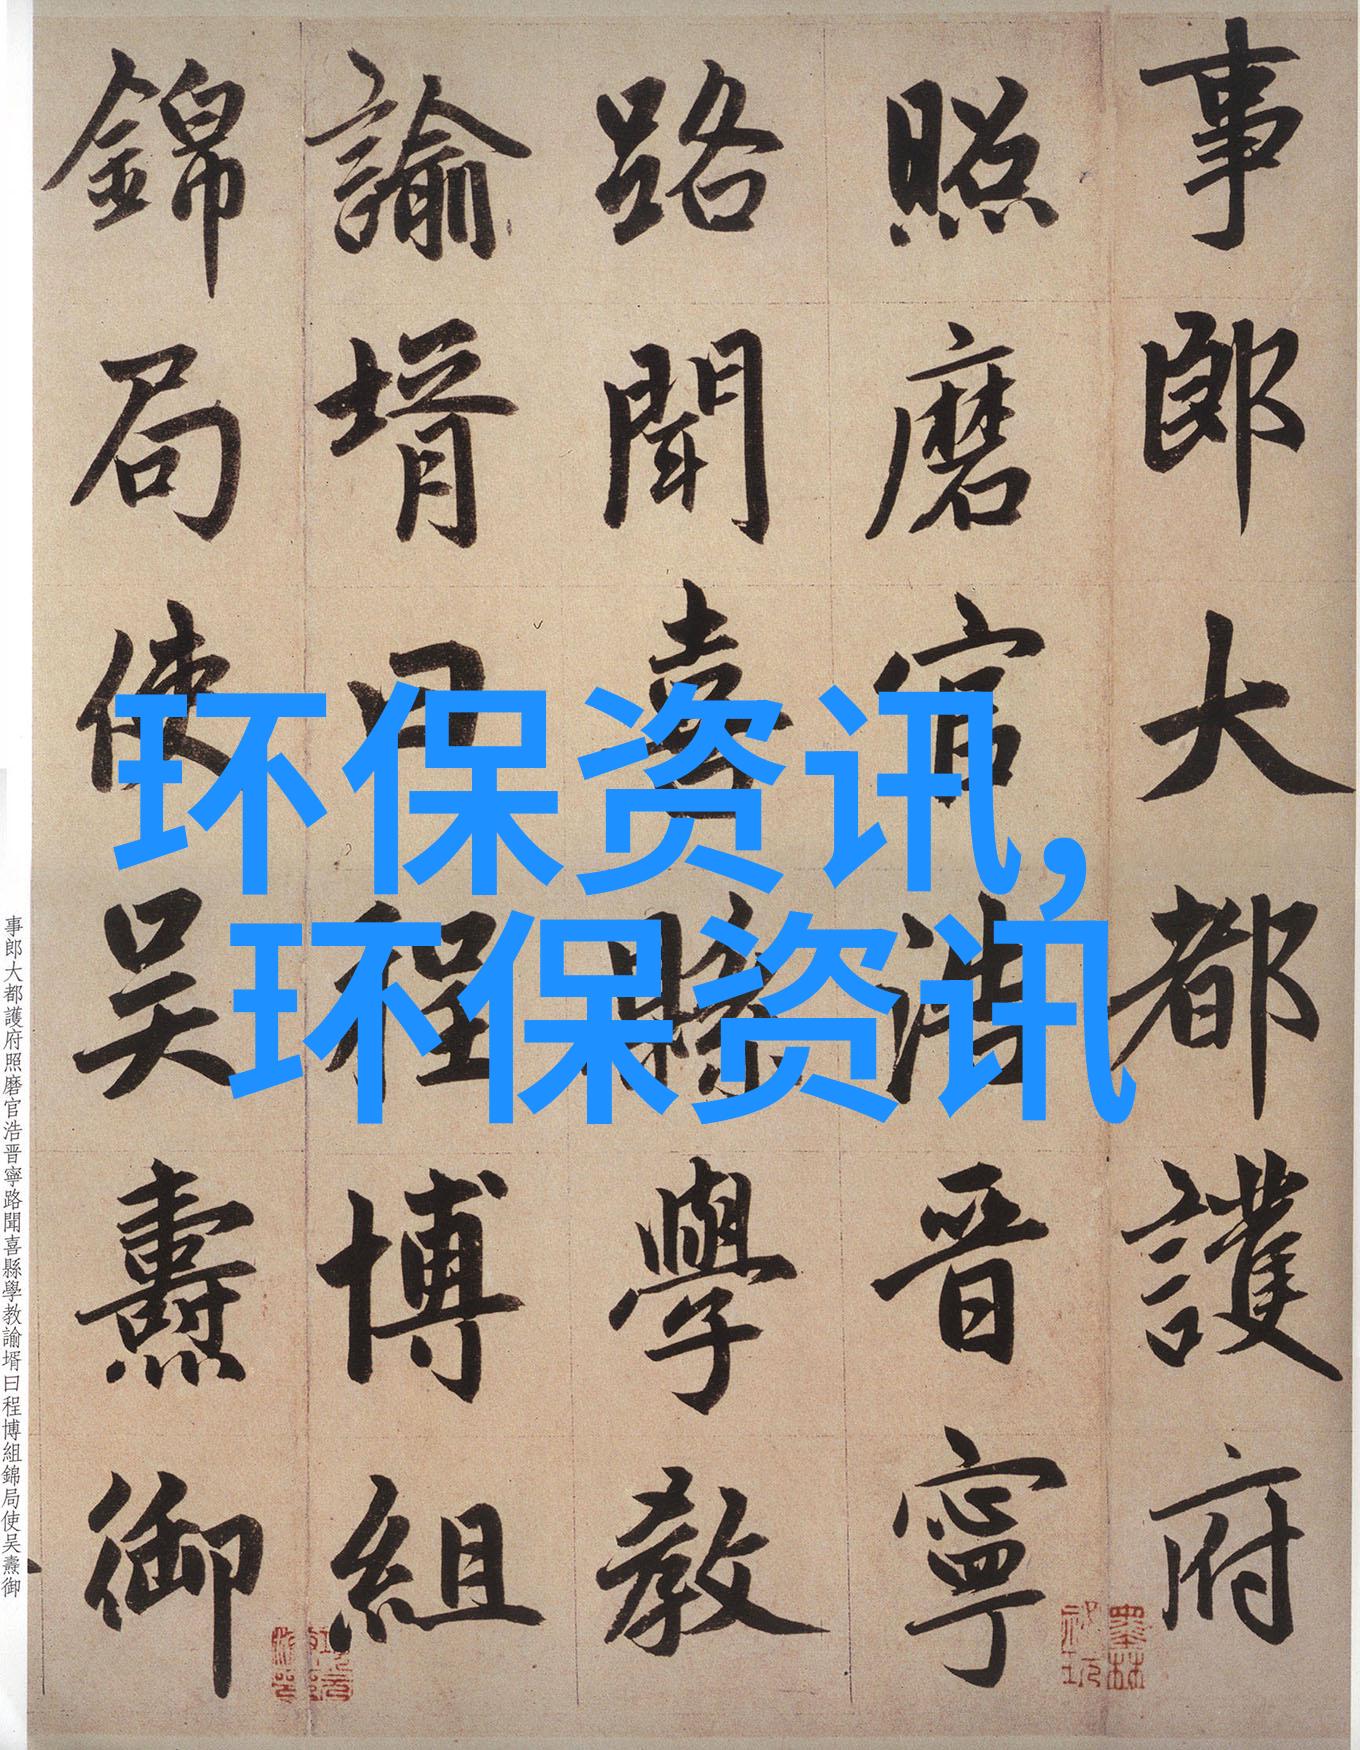 事郎大都護府
照磨官浩晋寧
路聞喜縣學教
諭壻曰程博組
錦局使吴燾御
环保资讯，
环保资讯
事郎大都護府照磨官浩晋寧路聞喜縣學教諭壻曰程博組錦局使吴燾御